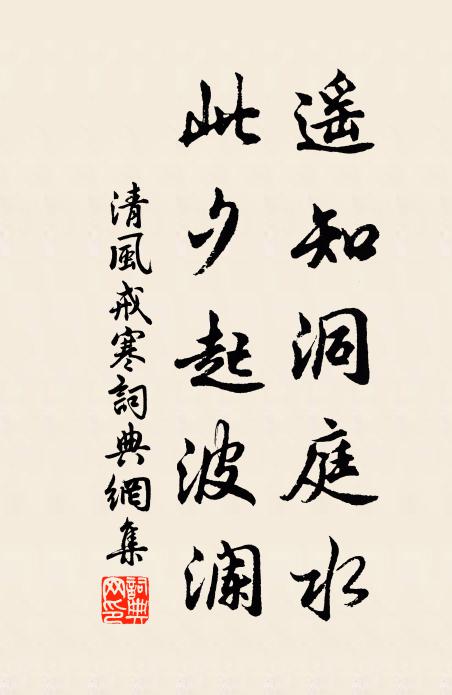 遥知洞庭水
此夕起波澜
清風戒寒詞典網集
詞典网印